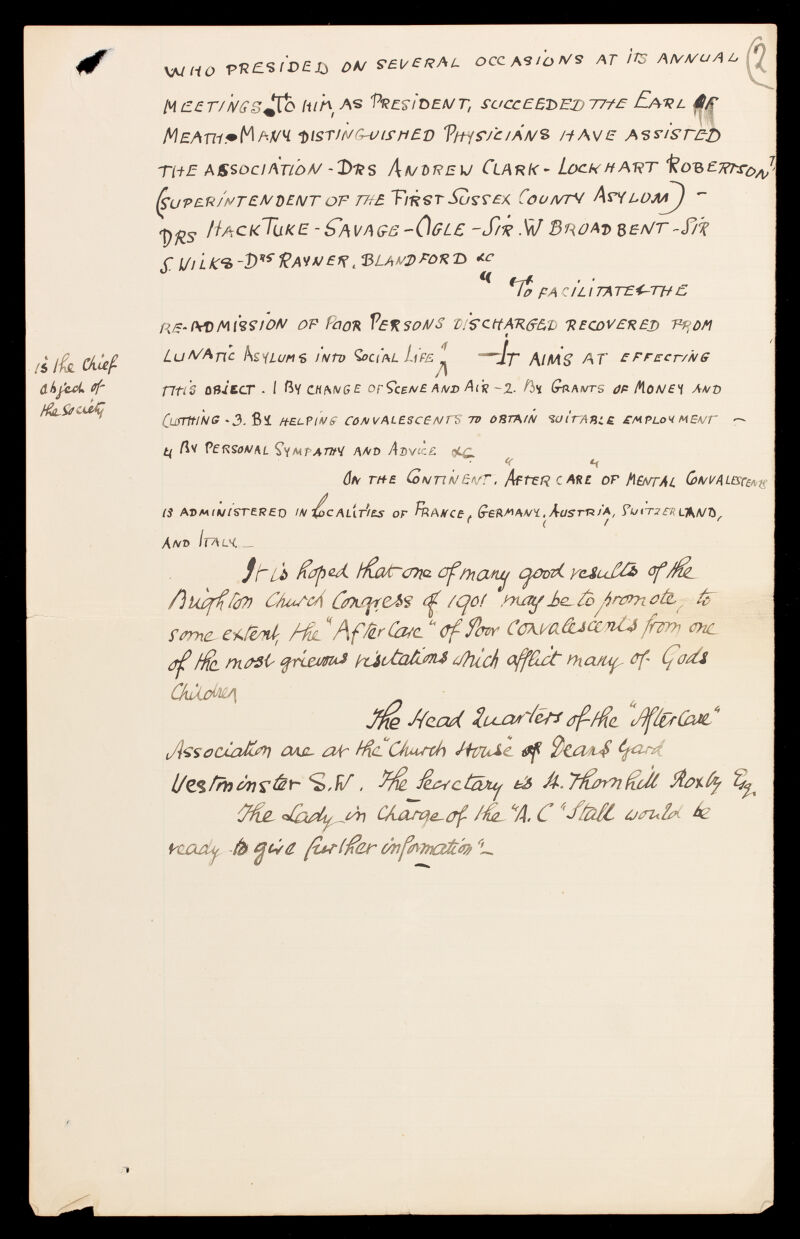 2
WHO PRESIDED ON SEVERAL OCCASIONS AT ITS ANNUAL
MEETINGS. TO HIM, AS PRESIDENT, SUCCEEDED THE EARL OF
MEATH. MANY DISTINGUISHED PHYSICIANS HAVE ASSISTED
THE ASSOCIATION - DRS ANDREW CLARK - LOCKHART ROBERTSON
(SUPERINTENDENT OF THE FIRST SUSSEX COUNTY ASYLUM) -
DRS HACK TUKE - SAVAGE - OGLE - SIR. W BROADBENT - SIR
S. WILKS - DRS RAYNER, BLANDFORD &C
" "TO FACILITATE THE
RE-ADMISSION OF POOR PERSONS DISCHARGED RECOVERED FROM
LUNATIC ASYLUMS INTO SOCIAL LIFE" — IT AIMS AT EFFECTING
is the Chief
object of
the Society
THIS OBJECT. 1 BY CHANGE OF SCENE AND AIR - 2. BY GRANTS OF MONEY AND
CLOTHING - 3. BY HELPING CONVALESCENTS TO OBTAIN SUITABLE EMPLOYMENT -
4 BY PERSONAL SYMPATHY AND ADVICE &C
ON THE CONTINENT, "AFTER CARE" OF MENTAL CONVALESCENTS
IS ADMINISTERED IN LOCALITIES OF FRANCE, GERMANY, AUSTRIA, SWITZERLAND,
AND ITALY —
It is hoped that one of many good results of the
Brighton Church Congress of 1901 may be to promote, to
some extent, the "After Care" of Poor Convalescents from one
of the most grievous visitations which afflict many of Gods
Children
The Head Quarters of the "After Care"
Association are at the "Church House" Deans Yard
Westminster S.W. The Secretary is H. Thornhill Roxby Esq.
The Lady in Charge of the "A.C" Stall would be
ready to give further information" —